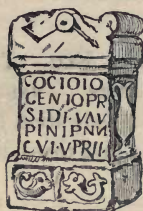 COCIOIO
GENIOPR
SIDI·VAV
PINIPNV
CVI·VPRII